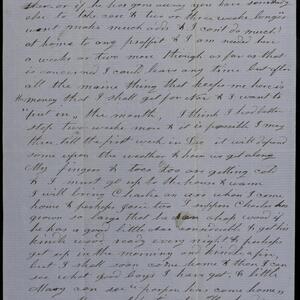 or if he has gone away you have something
else to take care & two or three weeks longer
wont make much odds & I cant do much
at home to any proffit & I am needed here
a weeks or two more though as far as that
is concerned I could leave any time but after
all the maine thing that keeps me here is
the money that I shall get for Nov & I want to
"put in" the month, I think I had better
stop two weeks more & it is possible I may
then till the first week in Dec it will depend
some upon the weather & how we get along
My fingers & toes too are getting cold
& I must go up to the house & warm
I will bring Charlie an when I come
home & perhaps I suppose Charlie has
grown so large that he can chop wood if
he has a good little & get his
kindle wood ready every night & perhaps
get up in the morning and kindle a fire,
but I shall soon come home & then I can
see what good boys I have got, & little
Mary can see "papa" has come home"